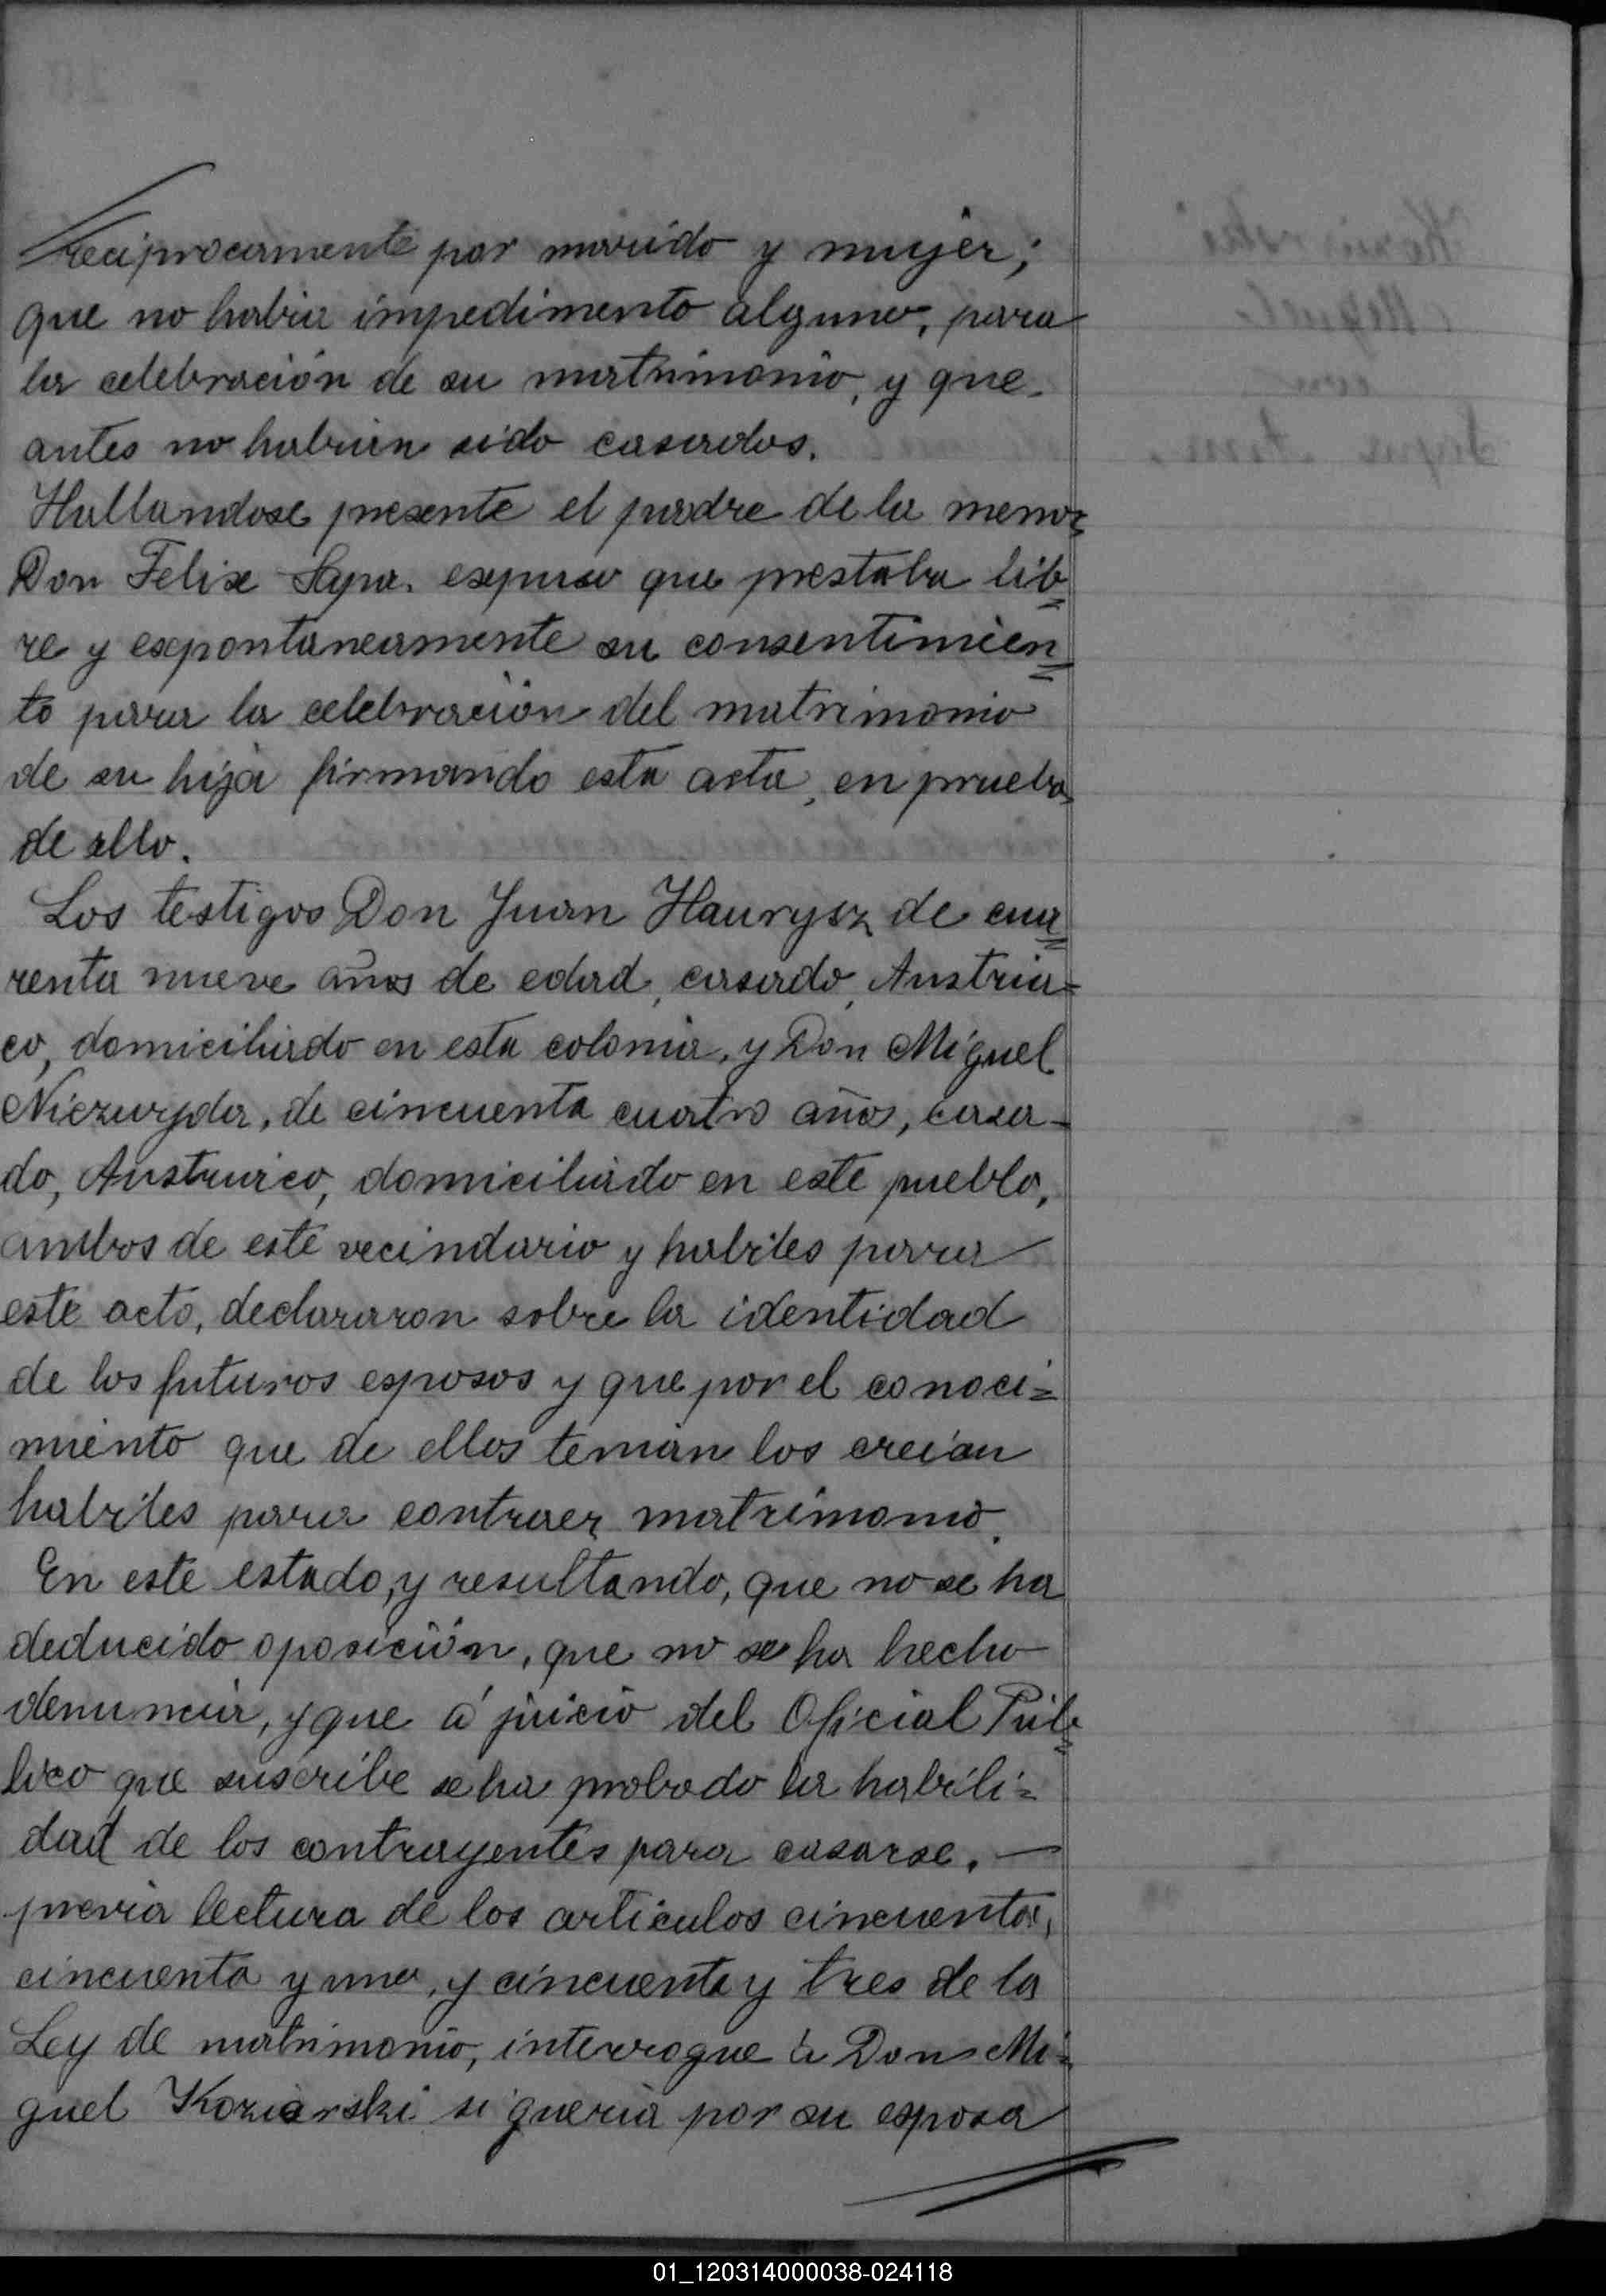 reciprocamente por marido y mujer;
que no habia impedimento alguno, para
la celebración de su matrimonio, y que
antes no habian sido casados.
Hallandose presente el padre de la menor
Don Felix Sapa. expuso que prestaba lib=
re y expontaneamente su consentimien=
to para la celebración del matrimonio
de su hija firmando esta acta, en prueba
de ello.
Los testigos Don Juan Haurysz de cua=
renta nueve años de edad, casado, Austria=
co, domiciliado en esta colonia, y Don Miguel
Niezwyda, de cincuenta cuatro años, casa-
do, Austriaco, domiciliado en este pueblo,
ambos de este vecindario y habiles para
este acto, declararon sobre la identidad
de los futuros esposos y que por el conoci=
miento que de ellos tenian los creian
habiles para contraer matrimonio.
En este estado, y resultando, que no se ha
deducido oposición, que no se ha hecho
denuncia, y que á juicio del Oficial Púb=
lico que suscribe se ha probado la habili=
dad de los contrayentes para casarse. —
previa lectura de los articulos cincuenta,
cincuenta y uno, y cincuenta y tres de la
Ley de matrimonio, interrogue á Don Mi=
guel Koziarski si queria por su esposa
01_120314000038-024118